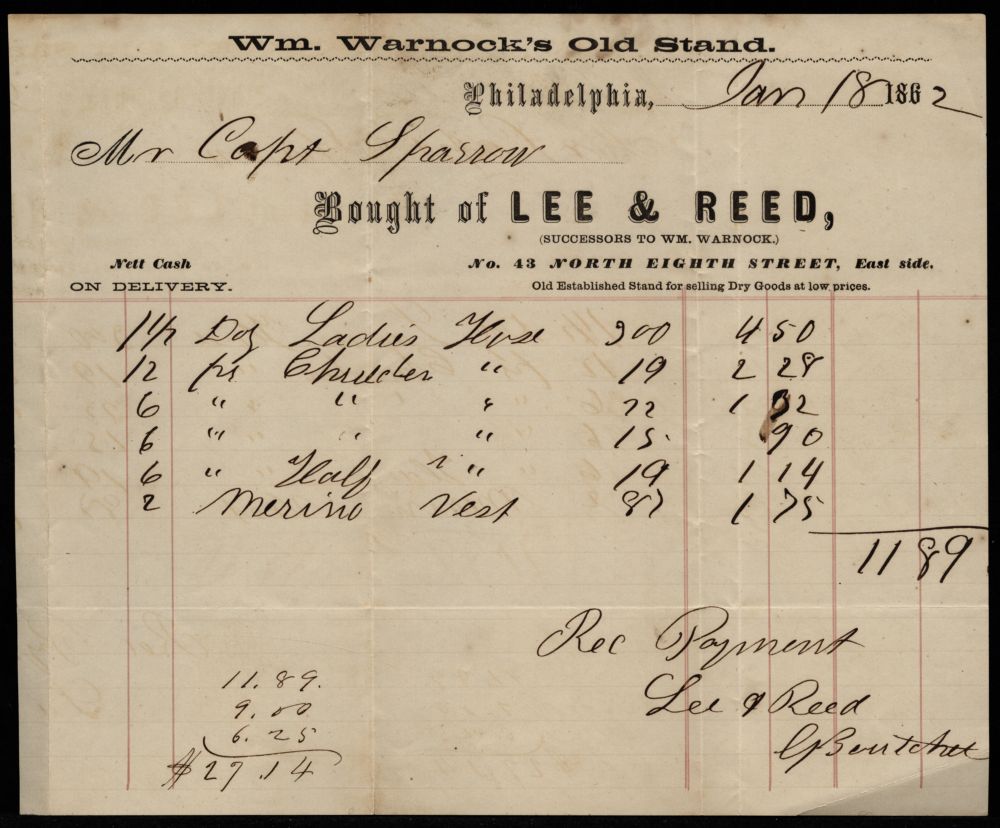 Wm. Warnock's Old Stand.
Philadelphia, Jan 18 1862
Mr Capt Sparrow
Bought of LEE & REED,
(SUCCESSORS TO WM. WARNOCK.)
Nett Cash No. 43 NORTH EIGHTH STREET, East side.
ON DELIVERY. Old Established Stand for selling Dry Goods at low prices.
1 1/2 Doz Ladies Hose 300 4 50
12 prs " 19 2 28
6 " " " 22 1 32
6 " " " 15 90
6 " Half " 19 1 14
2 Merino Vest 87 1 75
11 89
Rec Payment
Lee & Reed
11.89.
9.00
6.25
$27.14